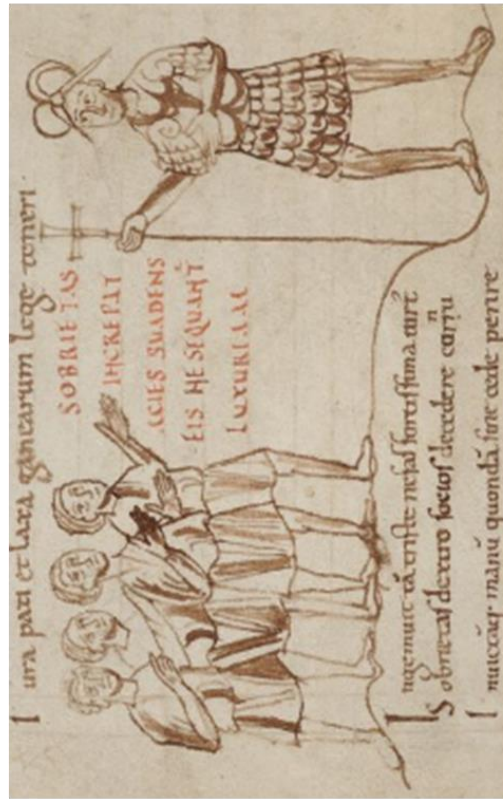 Iura pati et laxa ganearum lege teneri.
SOBRIETAS
INCREPAT
ACIES SUADENS
EIS NE SEQUANT̃
LUXURIAM
Ingemuit tā triste nefas fortissima uirt̄
Sobrietas dextro socios decedere cornu
Inuictāq; manū quondā sine cede perire